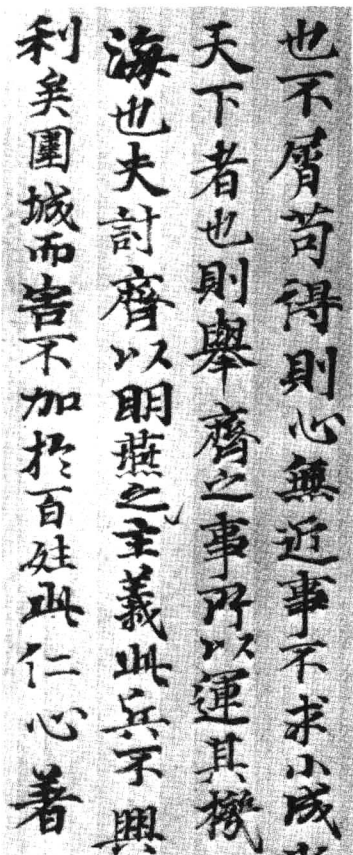 也不屑苟得則心無近事不求小成
天下者也則舉齊之事所以運其機
海也夫討齊以明燕之主義此兵不興
利矣圍城而害不加於百姓此仁心著